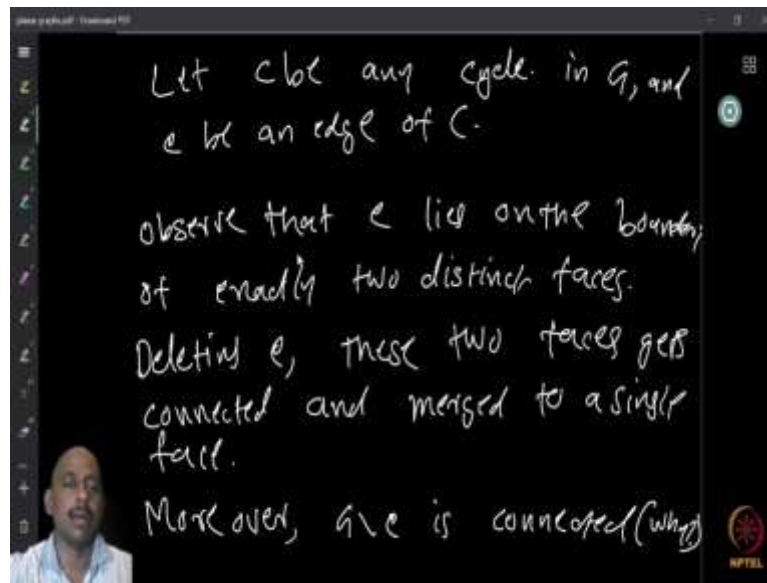 Let C be any cycle in G, and
e be an edge of C.
observe that e lies on the boundary
of exactly two distinct faces.
Deleting e, these two faces gets
connected and merged to a single
face.
Moreover, G\e is connected (why?)
NPTEL